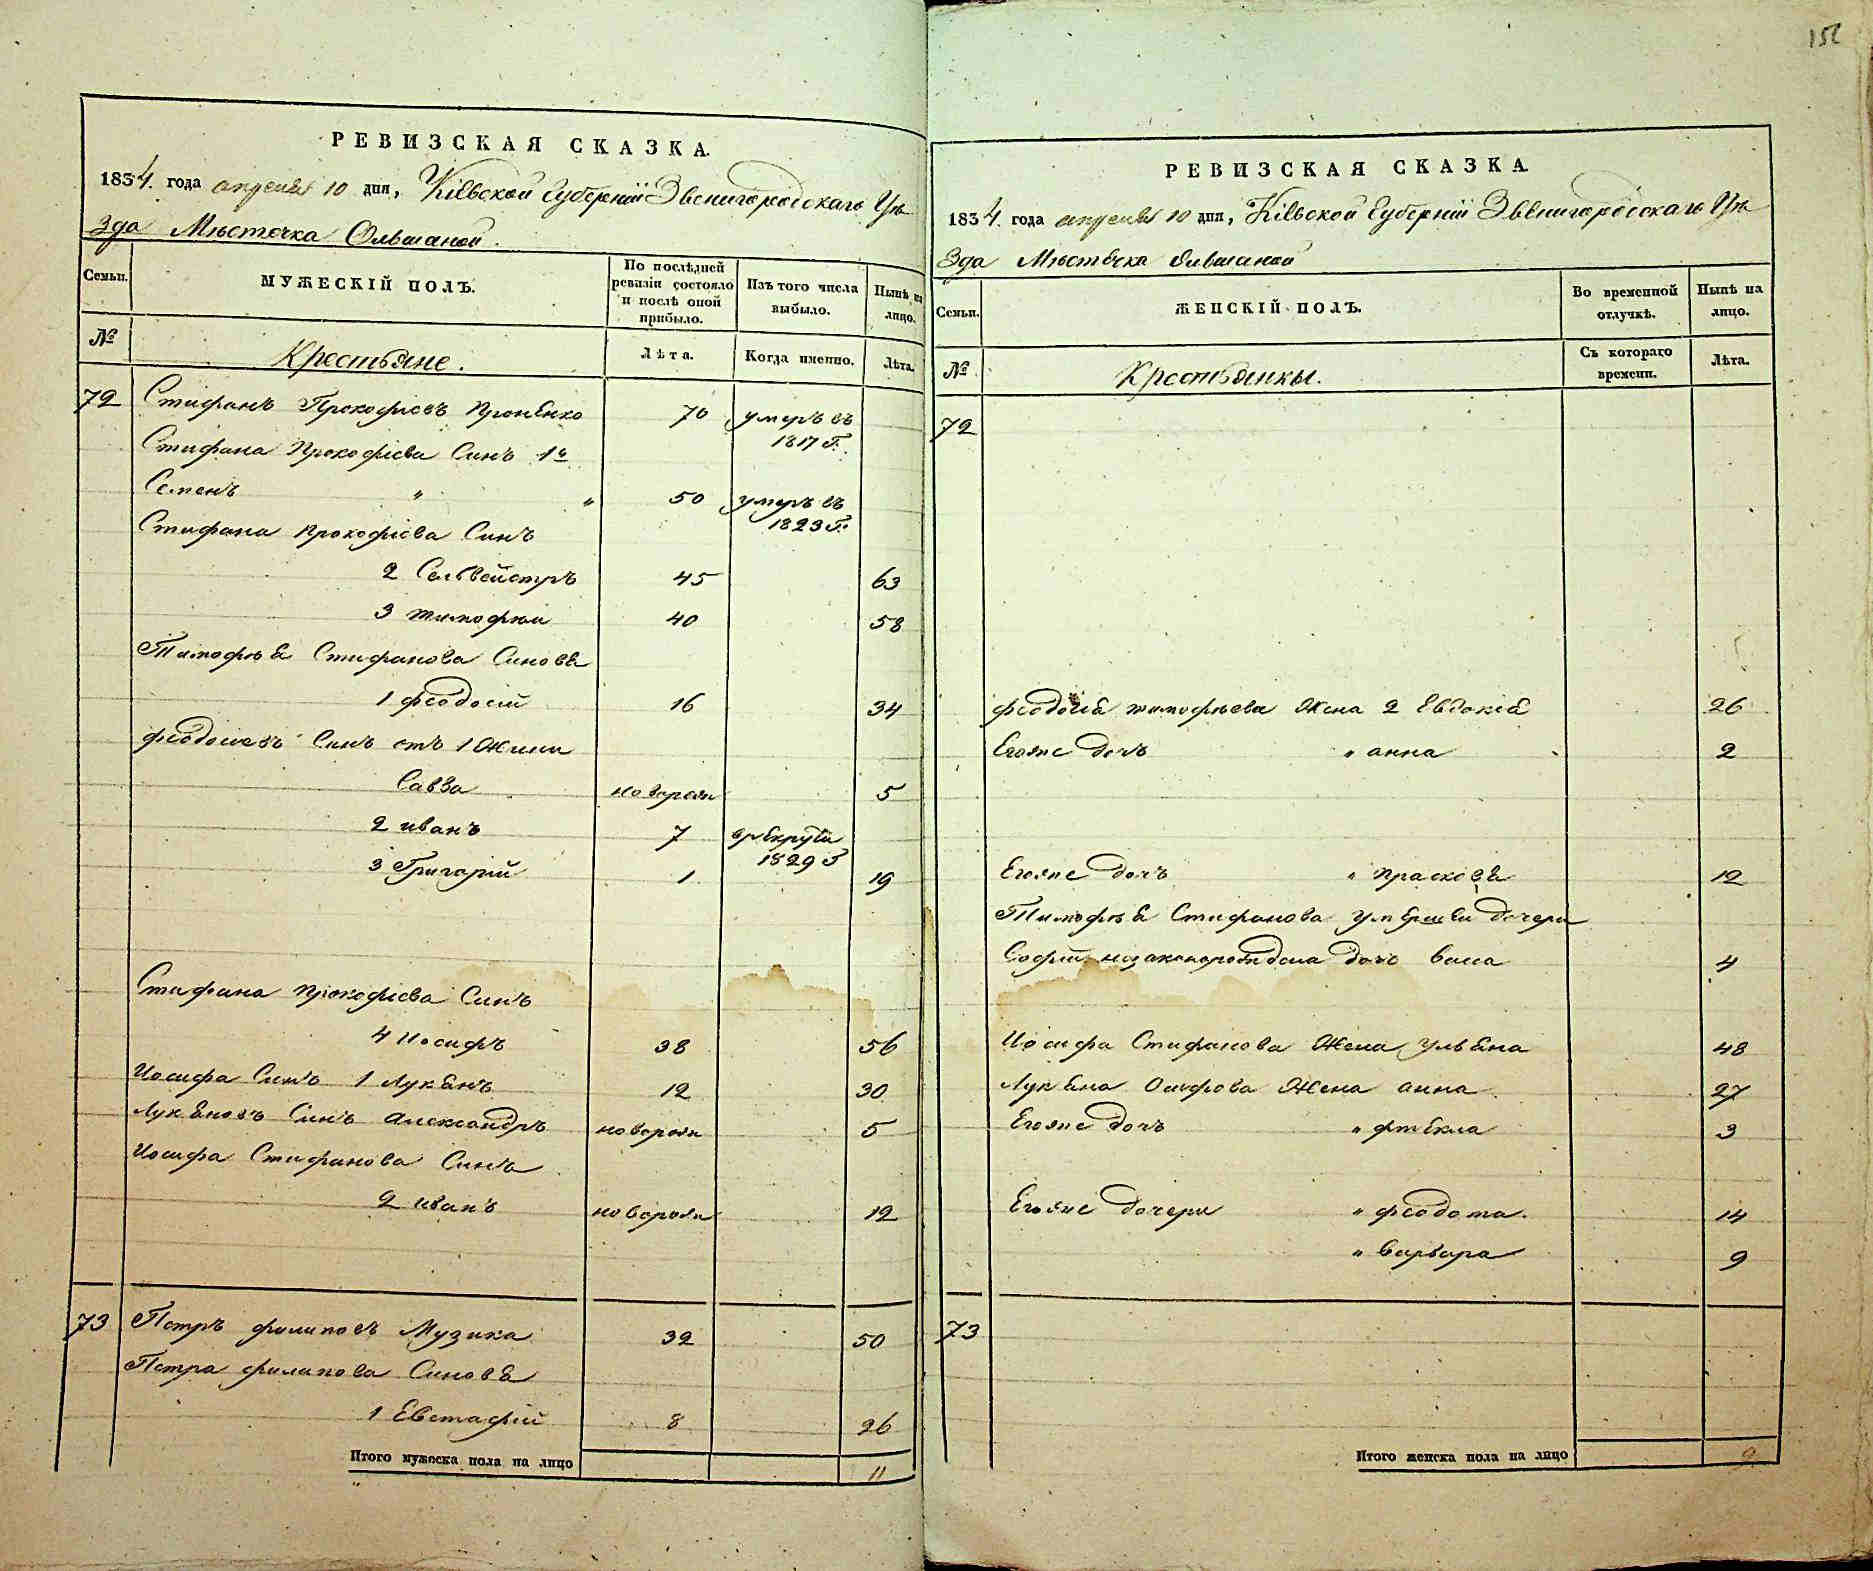 152
РЕВИЗСКАЯ СКАЗКА.
1834. года апреля 10 дня, Кіевской Губерніи Звенигородского Уѣ
зда Мѣстечка Ольшаной.
Семьи. МУЖЕСКІЙ ПОЛЪ. По послѣдней ревизіи состояло и послѣ оной прибыло. Изъ того числа выбыло. Нынѣ на лицо.
№ Крестьяне. Лѣта. Когда именно. Лѣта.
72 Стифанъ Прокофіевъ Проненко 70 умеръ въ 1817 Г.
Стифана Прокофіева Синъ 1й
Семенъ " " 50 умеръ въ 1823 Г.
Стифана Прокофіева Синъ
2 Селвейстръ 45 63
3 Тимофѣй 40 58
Тимофѣя Стифанова Синовя
1 Феодосій 16 34
Феодосіевъ Синъ отъ 1 Жини
Савва новорож 5
2 иванъ 7 врекрути 1829 Г
3 Григорій 1 19
Стифана Прокофіева Синъ
4 Иосифъ 38 56
Иосифа Синъ 1 Лукянъ 12 30
Лукяновъ Синъ Александръ новорож 5
Иосифа Стифанова Синъ
2 иванъ новорож 12
73 Петръ филиповъ Музика 32 50
Петра филипова Синовя
1 Евстафій 8 26
Итого мужеска пола на лицо 11
РЕВИЗСКАЯ СКАЗКА.
1834. года апреля 10 дня, Кіевской Губерніи Звенигородского Уѣ
зда Мѣстечка Олшаной
Семьи. ЖЕНСКІЙ ПОЛЪ. Во временной отлучкѣ. Нынѣ на лицо.
№ Крестьянки. Съ котораго времени. Лѣта.
72
Феодосія тимофѣева Жена 2 Евдокія 26
Егожъ дочъ " анна 2
Егояже дочъ " Прасковя 12
Тимофѣя Стифанова умершей дочери
Софіи незаконорожденна дочъ васа 4
Иосифа Стифанова Жена уляна 48
Лукяна Осифова Жена анна 27
Егояже дочъ " фтекла 3
Егояже дочери " феодота 14
" варвара 9
73
Итого женска пола на лицо 9